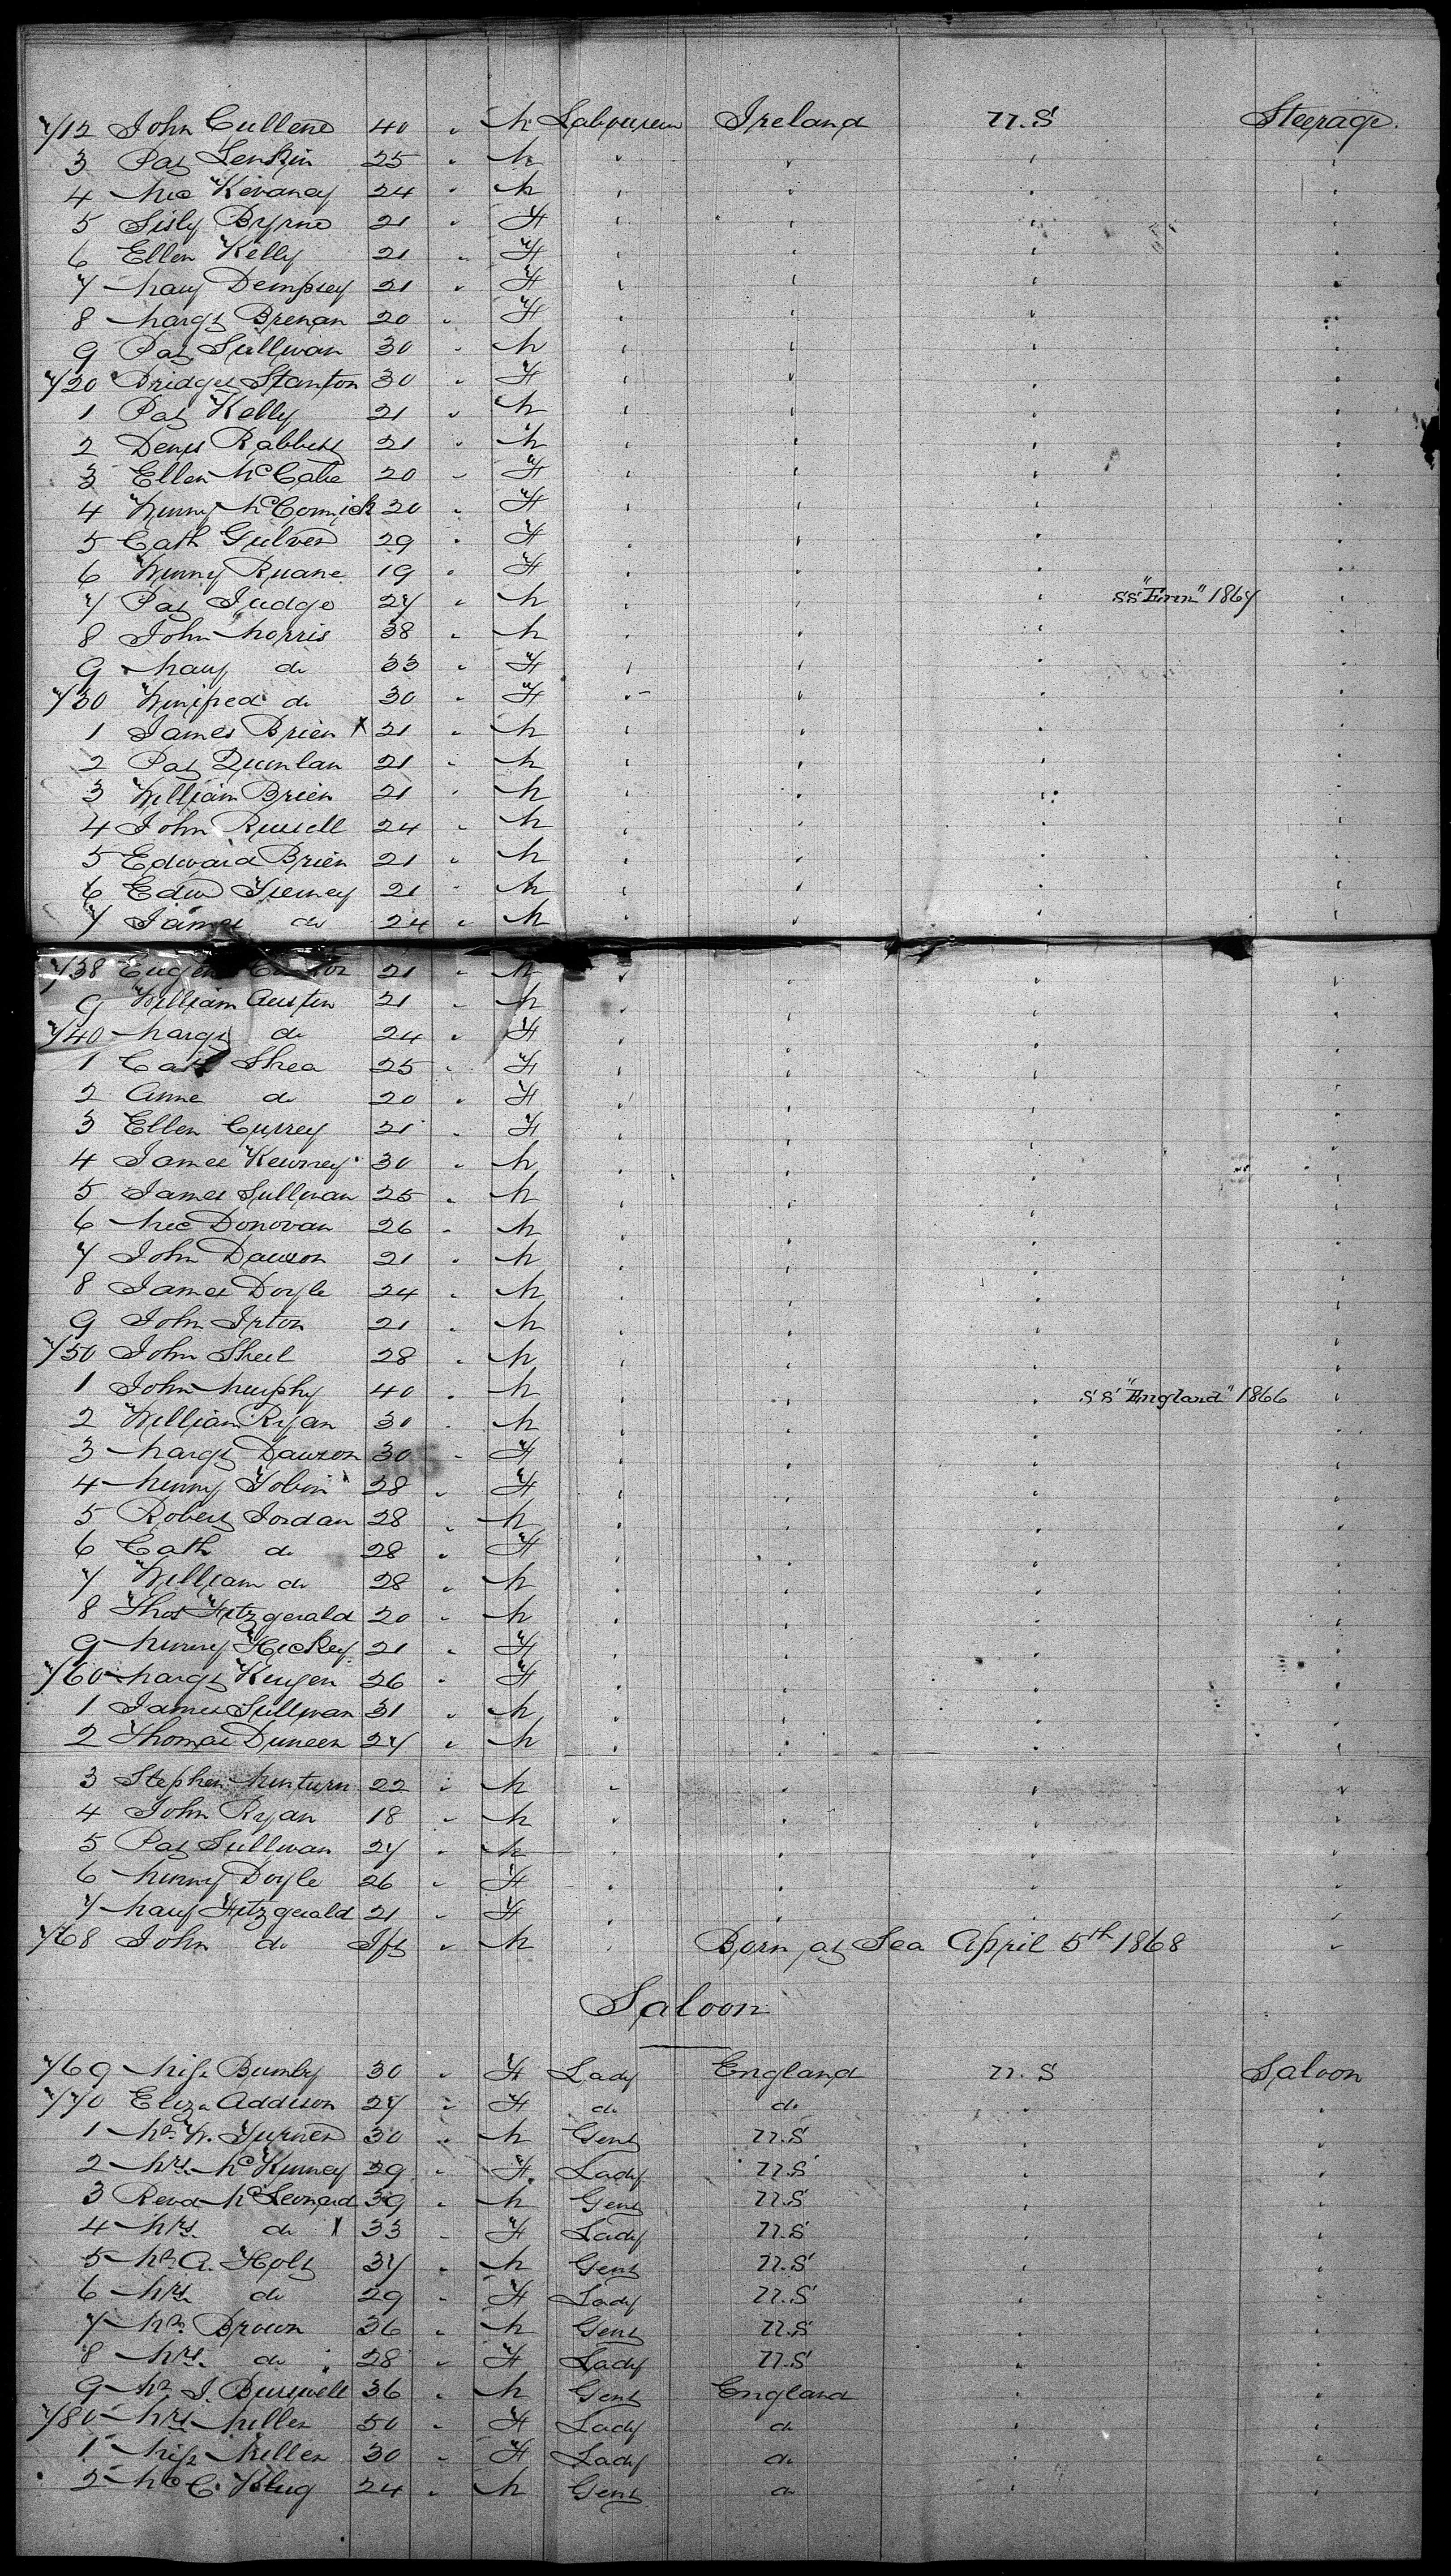 712 John Cullen 40 " M Labourer Ireland U.S Steerage.
3 Pat Lenkin 25 " M " " " "
4 Mic Kevaney 24 " M " " " "
5 Sisly Byrne 21 " F " " " "
6 Ellen Kelly 21 " F " " " "
7 Mary Dempsey 21 " F " " " "
8 Margt Brenan 20 " F " " " "
9 Pat Sullivan 30 " M " " " "
720 Bridget Stanton 30 " F " " " "
1 Pat Kelly 21 " M " " " "
2 Denis Rabbitt 21 " M " " " "
3 Ellen McCabe 20 " F " " " "
4 Winny McCormick 20 " F " " " "
5 Cath Gulver 29 " F " " " "
6 Winny Ruane 19 " F " " " "
7 Pat Judge 27 " M " " " SS "Erin" 1867 "
8 John Morris 38 " M " " " "
9 Mary do 33 " F " " " "
730 Winifred do 30 " F " " " "
1 James Brien X 21 " M " " " "
2 Pat Quinlan 21 " M " " " "
3 William Brien 21 " M " " " "
4 John Russell 24 " M " " " "
5 Edward Brien 21 " M " " " "
6 Edwd Tierney 21 " M " " " "
7 James do 24 " M " " " "
738 21 " M " " " "
9 William Austin 21 " M " " " "
740 Margt do 24 " F " " " "
1 Cath Shea 25 " F " " " "
2 Anne do 20 " F " " " "
3 Ellen Currey 21 " F " " " "
4 James Kewney 30 " M " " " "
5 James Sullivan 25 " M " " " "
6 Mic Donovan 26 " M " " " "
7 John Dawson 21 " M " " " "
8 James Doyle 24 " M " " " "
9 John Irton 21 " M " " " "
750 John Sheil 28 " M " " " "
1 John Murphy 40 " M " " " SS "England" 1866 "
2 William Ryan 30 " M " " " "
3 Margt Dawson 30 " F " " " "
4 Minny Tobin x 28 " F " " " "
5 Robert Jordan 28 " M " " " "
6 Cath do 28 " F " " " "
7 William do 28 " M " " " "
8 Thos Fitzgerald 20 " M " " " "
9 Minny Hickey 21 " F " " " "
760 Margt Kugen 26 " F " " " "
1 James Sullivan 31 " M " " " "
2 Thomas Duneen 27 " M " " " "
3 Stephen Minturn 22 " M " " " "
4 John Ryan 18 " M " " " "
5 Pat Sullivan 27 " M " " " "
6 Minny Doyle 26 " F " " " "
7 Mary Fitzgerald 21 " F " " " "
768 John do Ift " M " Born at Sea April 5th 1868 "
Saloon
769 Miss Bumby 30 " F Lady England U.S Saloon
770 Eliza Addison 27 " F do do " "
1 Mr W. Turner 30 " M Gent U.S " "
2 Mrs McKinney 29 " F Lady U.S " "
3 Revd McLeonard 39 " M Gent U.S " "
4 Mrs do X 33 " F Lady U.S " "
5 Mr A. Holt 37 " M Gent U.S " "
6 Mrs do 29 " F Lady U.S " "
7 Mr Brown 36 " M Gent U.S " "
8 Mrs. do 28 " F Lady U.S " "
9 Mr J. Burwell 36 " M Gent England " "
780 Mrs Miller 50 " F Lady do " "
1 Miss Miller 30 " F Lady do " "
2 Mr C. Klug 24 " M Gent do " "